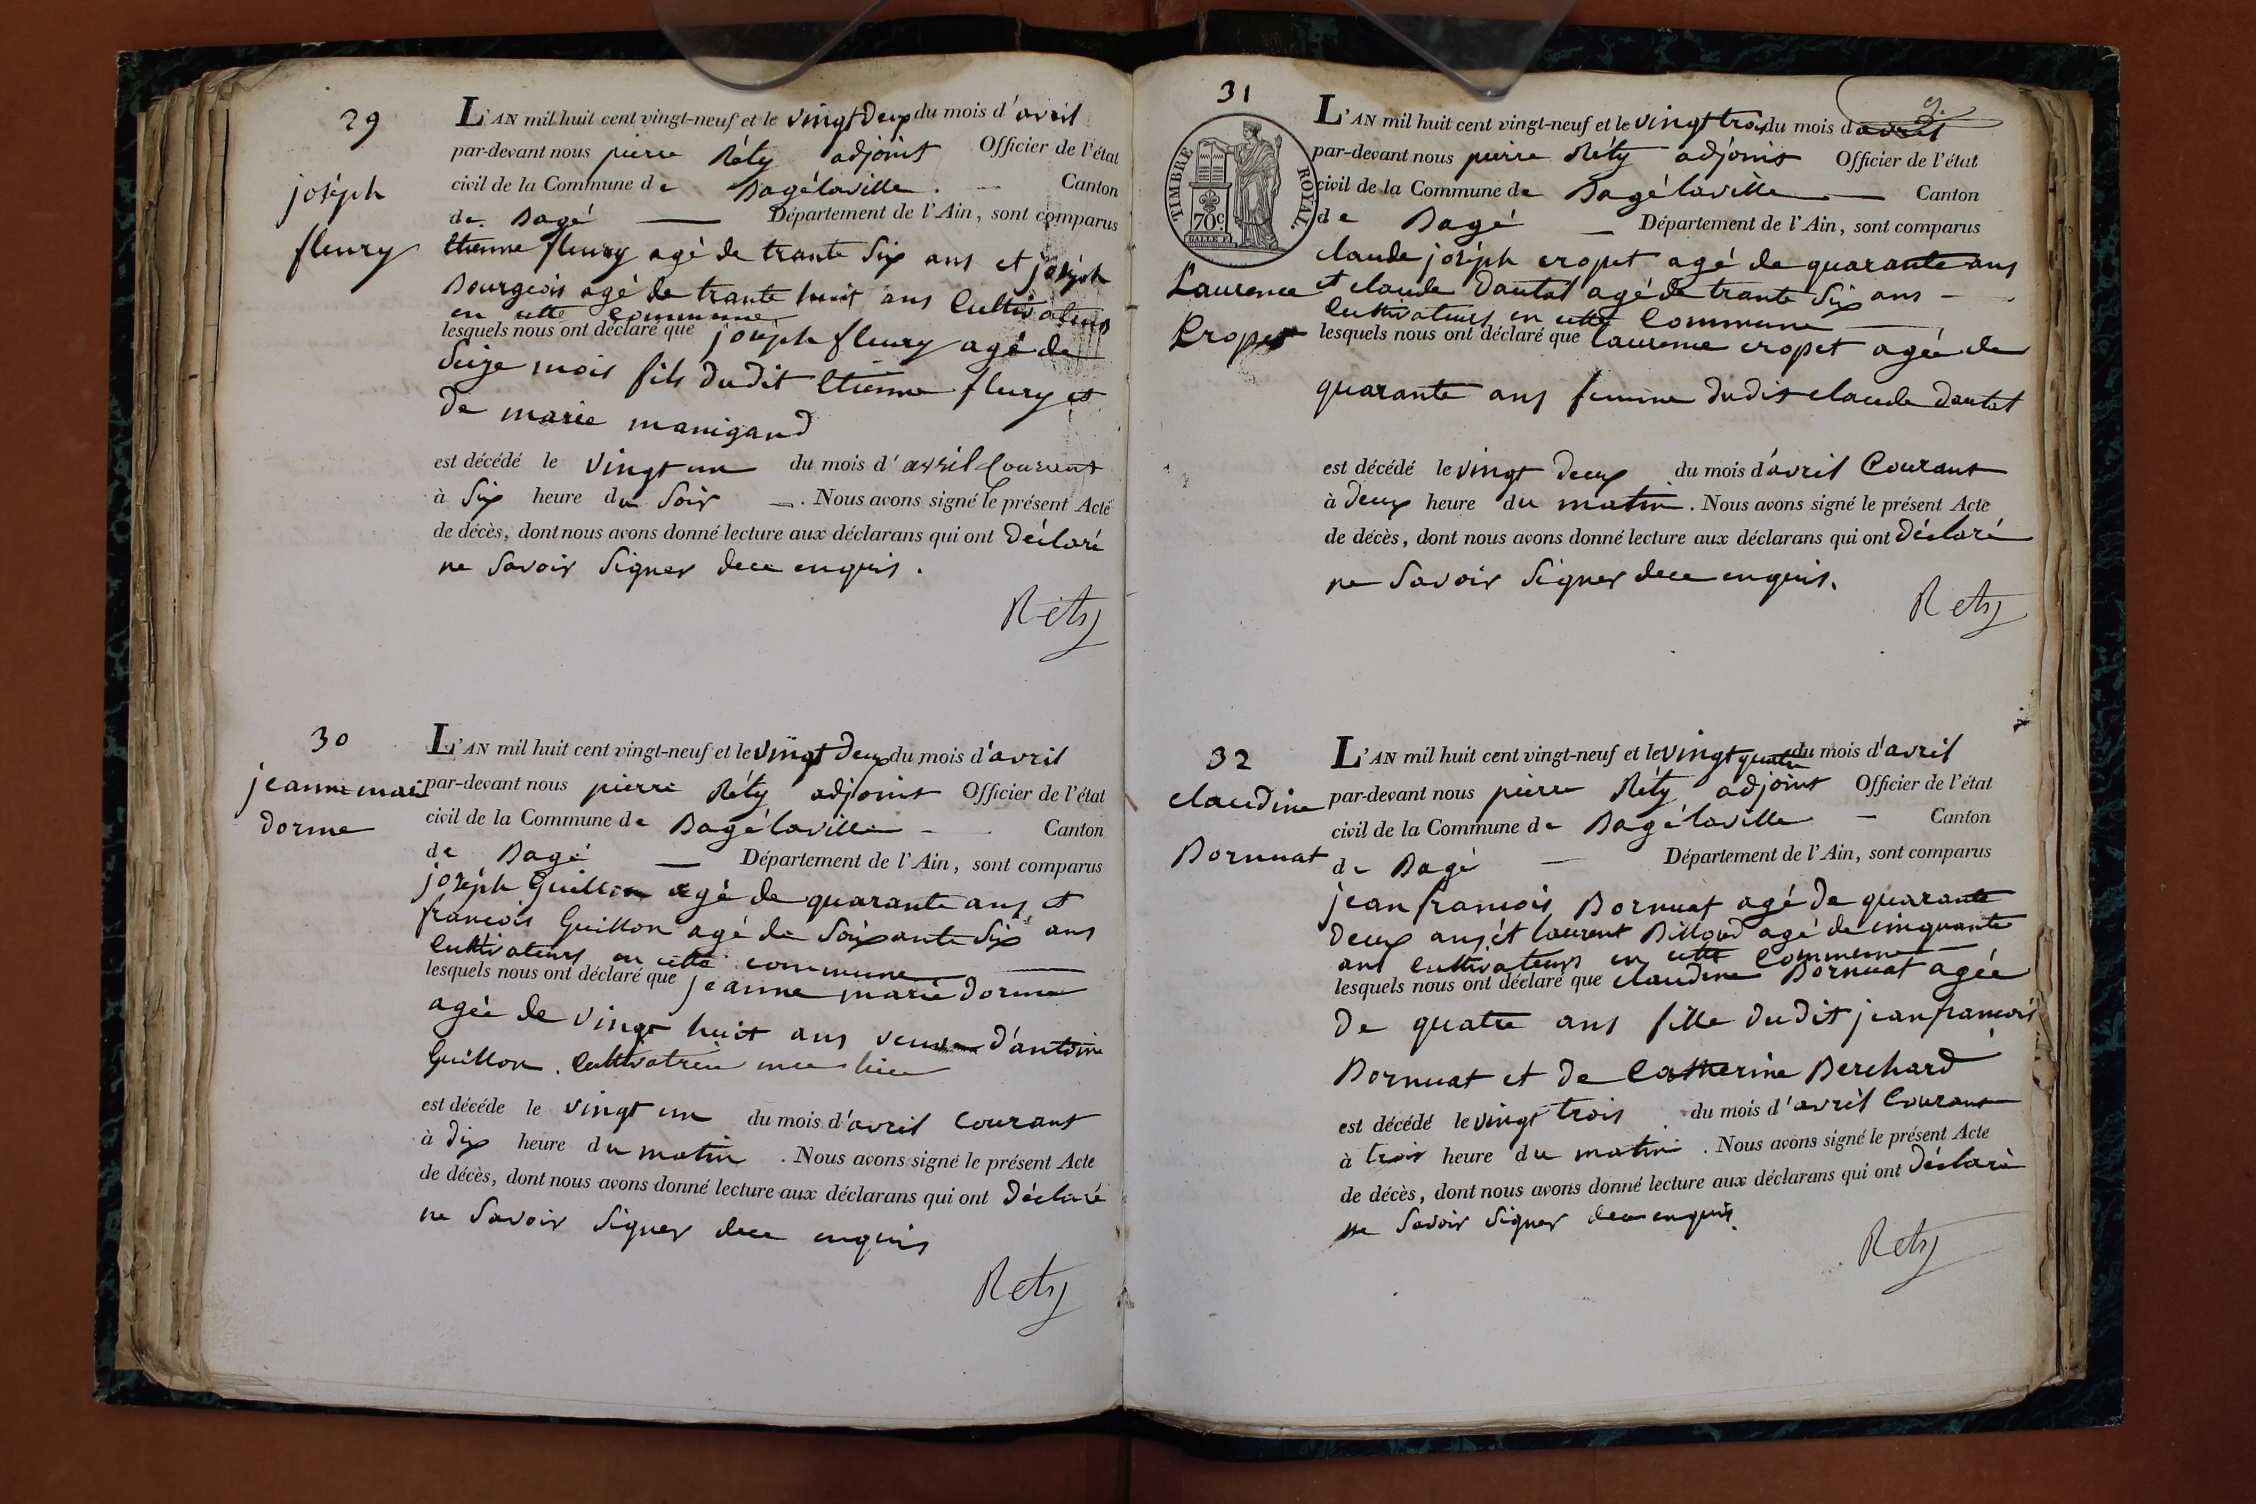 29
joséph
fleury
L'AN mil huit cent vingt-neuf et le vingt deux du mois d'avril
par-devant nous pierre Réty adjoint Officier de l'état
civil de la Commune de Bagélaville. — Canton
de Bagé — Département de l'Ain, sont comparus
Etienne fleury agé de trante Six ans et joséph
Bourgeois agé de trante huit ans Cultivateurs
en cette commune
lesquels nous ont déclaré que joséph fleury agé de
Seize mois fils dudit Etienne fleury et
de marie manigand
est décédé le vingt un du mois d'avril Courant
à Six heure du Soir —. Nous avons signé le présent Acte
de décès, dont nous avons donné lecture aux déclarans qui ont déclaré
ne Savoir Signer dece enquis.
Réty
30
jeanne marie
dorme
L'AN mil huit cent vingt-neuf et le vingt deux du mois d'avril
par-devant nous pierre Réty adjoint Officier de l'état
civil de la Commune de Bagélaville — Canton
de Bagé — Département de l'Ain, sont comparus
joséph Guillon agé de quarante ans et
francois Guillon agé de Soixante Six ans
Cultivateurs en cette commune —
lesquels nous ont déclaré que jeanne marie dorme
agée de vingt huit ans veuve d'antoine
Guillon. Cultivatrice
est décéde le vingt un du mois d'avril Courant
à dix heure du matin. Nous avons signé le présent Acte
de décès, dont nous avons donné lecture aux déclarans qui ont déclaré
ne Savoir Signer dece enquis
Rety
31
9.
TIMBRE ROYAL.
70c.
Laurence
Cropet
L'AN mil huit cent vingt-neuf et le vingt trois du mois d avril
par-devant nous pierre Réty adjoint Officier de l'état
civil de la Commune de Bagélaville — Canton
de Bagé — Département de l'Ain, sont comparus
claude joséph cropet agé de quarante ans
et claude dautat agé de trante Six ans —
Cultivateurs en cette Commune —
lesquels nous ont déclaré que laurence cropet agée de
quarante ans femme dudit claude dautat
est décédé le vingt deux du mois d'avril Courant
à deux heure du matin. Nous avons signé le présent Acte
de décès, dont nous avons donné lecture aux déclarans qui ont déclaré
ne Savoir Signer dece enquis.
Rety
32
claudine
Bornuat
L'AN mil huit cent vingt-neuf et le vingt quatre du mois d'avril
par-devant nous pierre Réty adjoint Officier de l'état
civil de la Commune de Bagélaville — Canton
de Bagé — Département de l'Ain, sont comparus
jean francois Bornuat agé de quarante
deux ans et laurent Billoud agé de cinquante
ans Cultivateurs en cette Commune
lesquels nous ont déclaré que claudine Bornuat agée
de quatre ans fille dudit jean francois
Bornuat et de Catherine Berchard
est décédé le vingt trois du mois d'avril Courant
à trois heure du matin. Nous avons signé le présent Acte
de décès, dont nous avons donné lecture aux déclarans qui ont déclaré
ne Savoir Signer dece enquis.
Rety